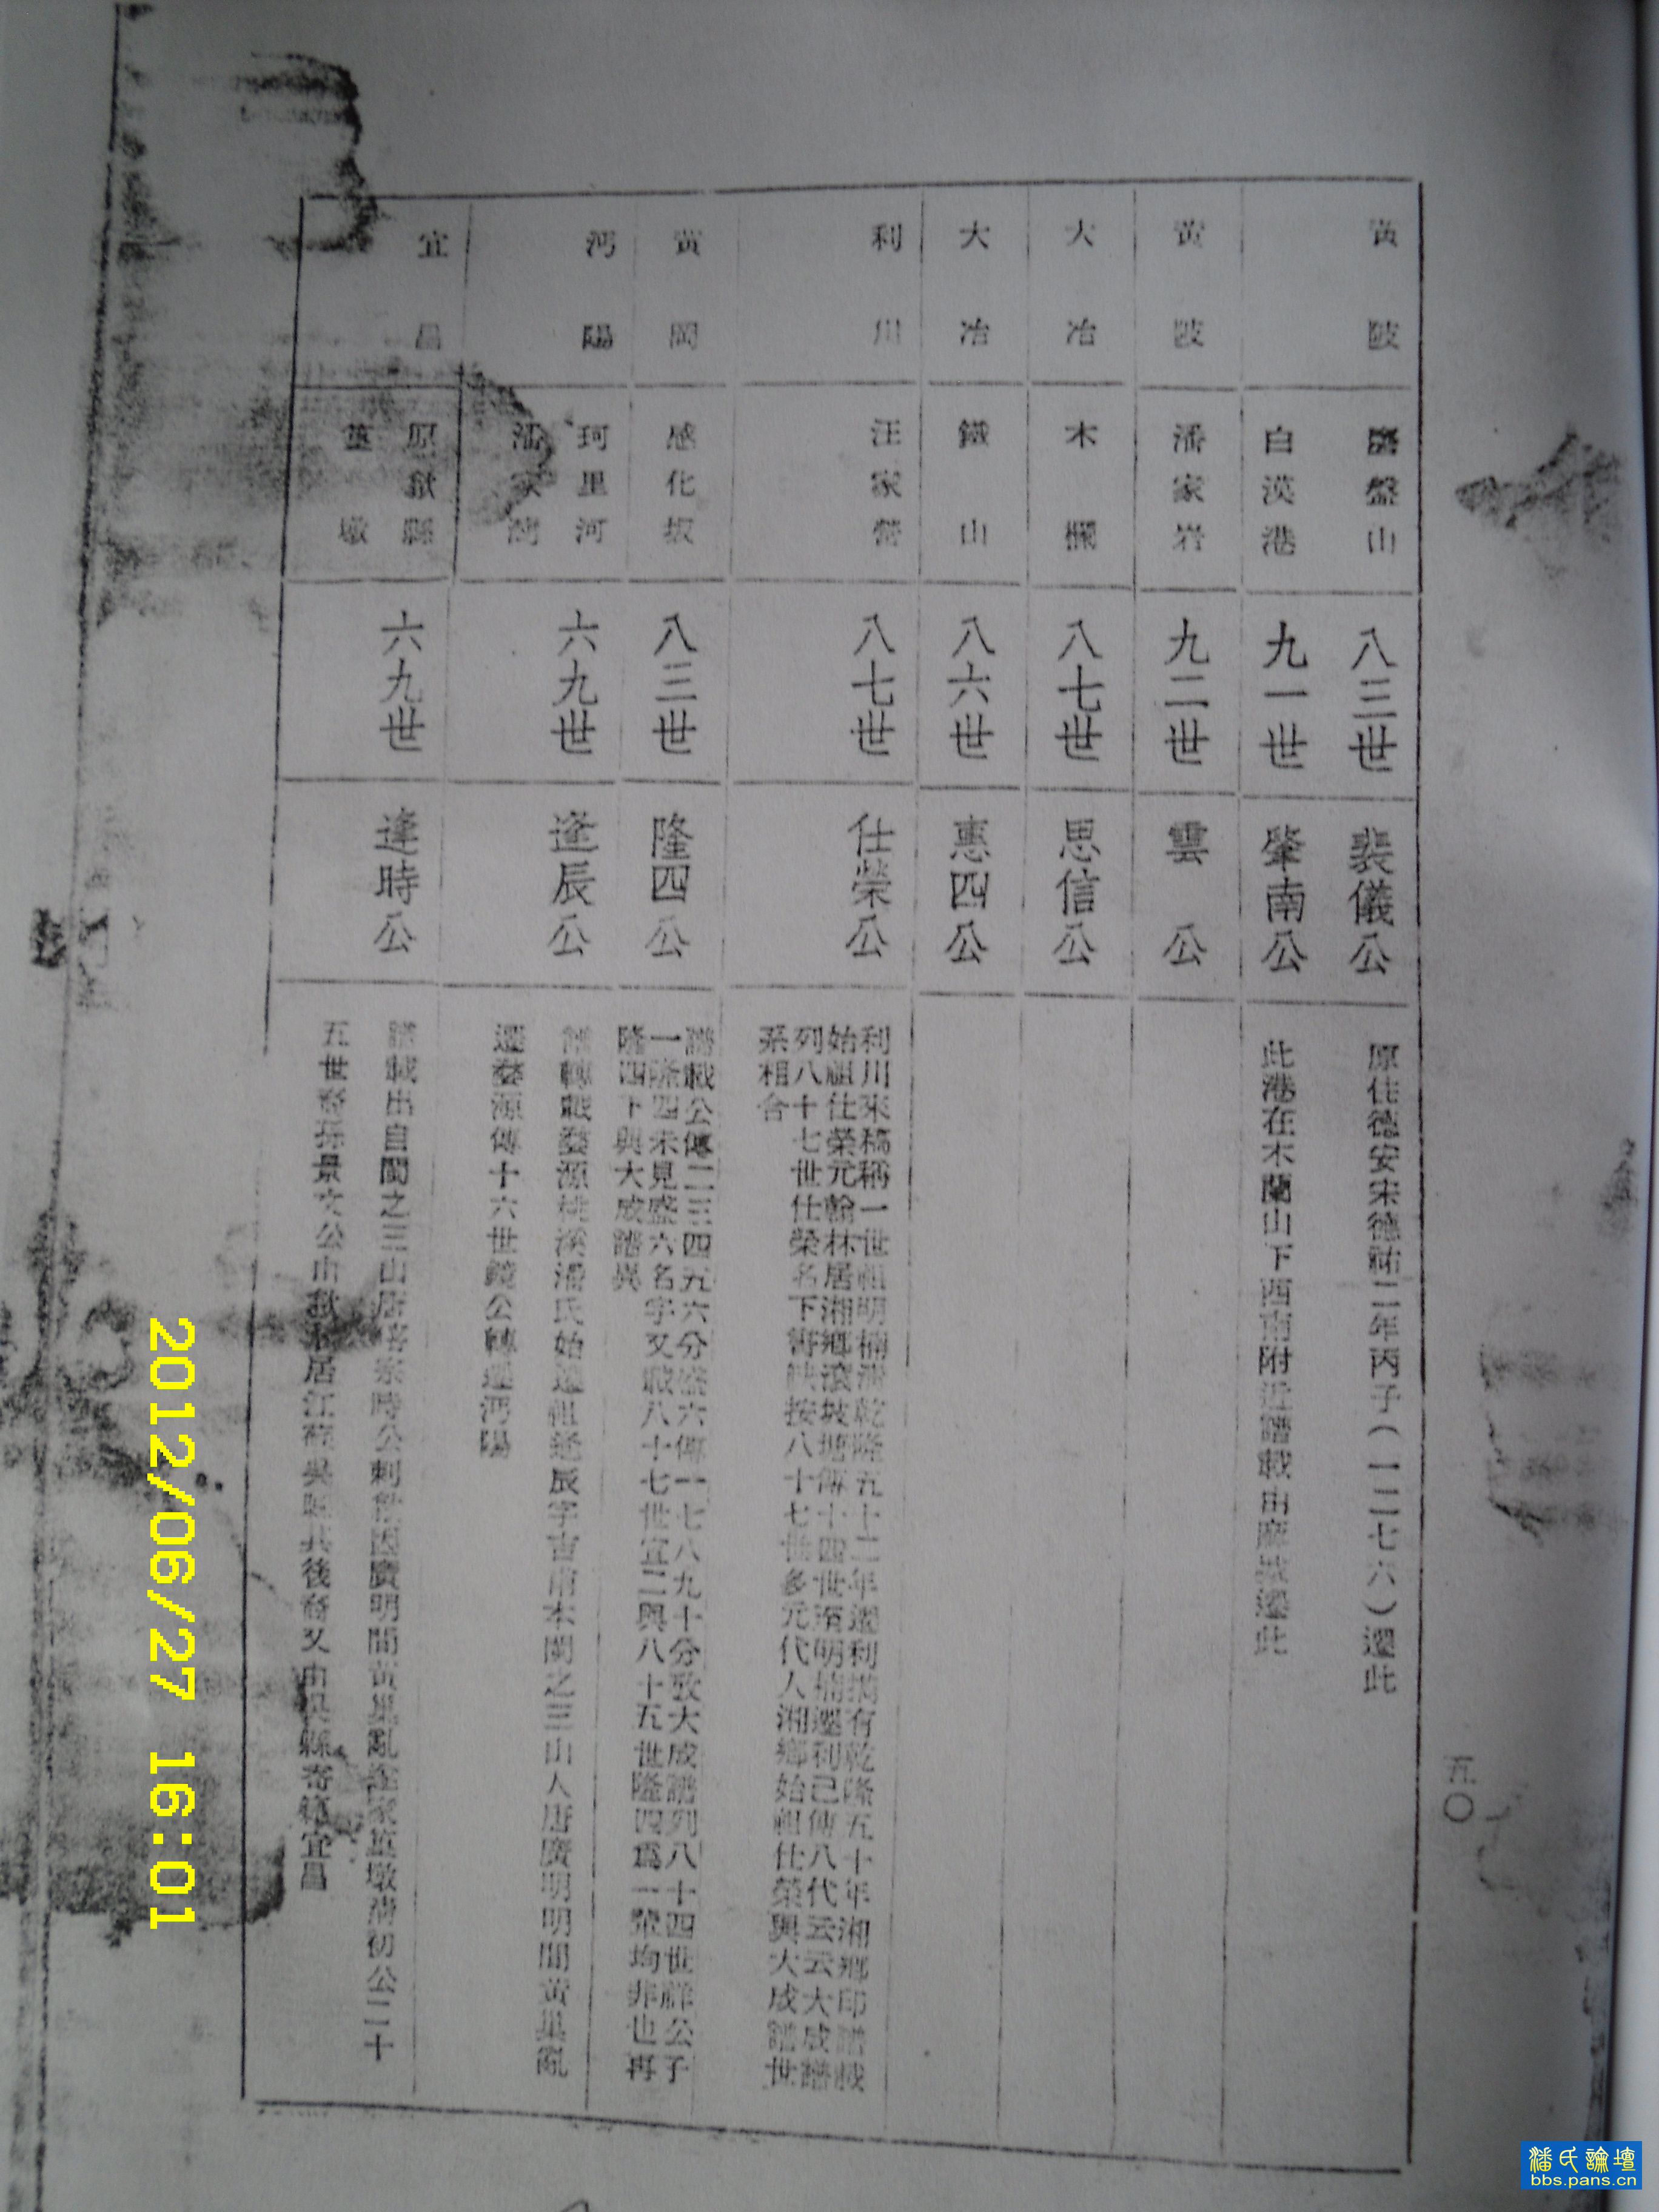 五〇
黃陂
磨盤山
八三世
裴儀公
原住德安宋德祐二年丙子(一二七六)遷此
白漠港
九一世
肇南公
此港在木蘭山下西南附近譜載由麻遷此
黃陂
潘家岩
九二世
雲公
大冶
木欄
八七世
思信公
大冶
鐵山
八六世
惠四公
利川
汪家營
八七世
仕榮公
利川來稿稱一世祖明楠清乾隆五十二年遷利攜有乾隆五十年湘鄉印譜載
始祖仕榮元翰林居湘鄉滾坡塘傳十四世至明楠遷利已傳八代云云大成譜
列八十七世仕榮名下書缺按八十七世多元代人湘鄉始祖仕榮與大成譜世
系相合
黃岡
感化坂
八三世
隆四公
譜載公傳二三四五六分盛六傳一七八九十分致大成譜列八十四世祥公子
一隆四未見盛六名字又載八十七世宜二興八十五世隆四爲一輩均非也再
隆四下與大成譜異
沔陽
珂里河
潘家灣
六九世
逢辰公
譜轉載婺源桃溪潘氏始遷祖逢辰字吉甫本閩之三山人唐廣明明間黃巢亂
遷婺源傳十六世錢公轉遷沔陽
宜昌
原歙縣
篁墩
六九世
逢時公
譜載出自閩之三山居時公刺歙因廣明間黃巢亂家篁墩清初公二十
五世裔孫景文公由歙居江蘇吳縣其後裔又由吳縣寄籍宜昌
2012/06/27 16:01
潘氏論壇
bbs.pans.cn